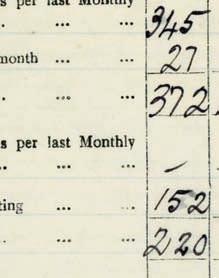 s per last Monthly
... ... 345
month ... ... 27
. ... ... 372
s per last Monthly
.. ... ... -
ting ... ... 152
. ... ... 220